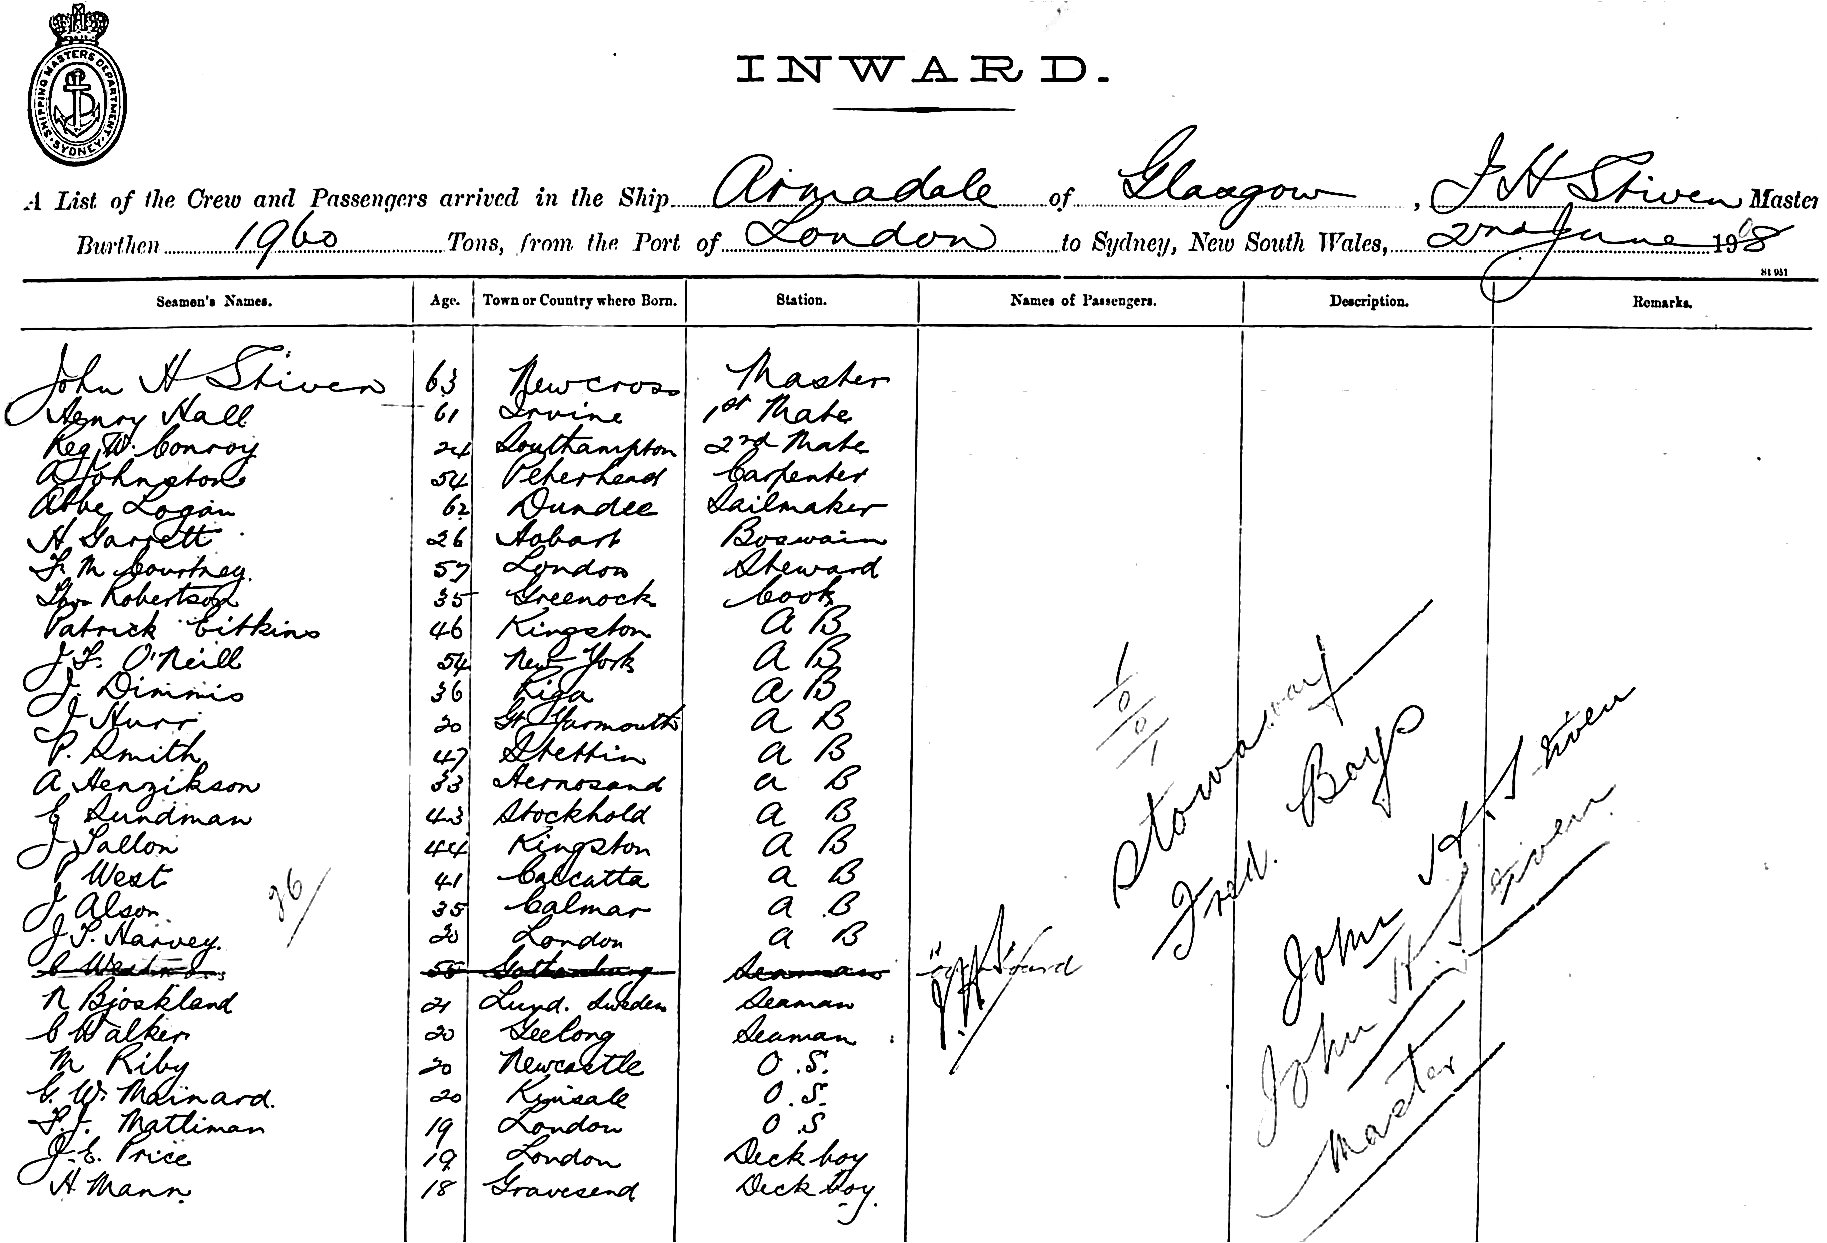 SHIPPING MASTERS DEPARTMENT SYDNEY
INWARD.
A List of the Crew and Passengers arrived in the Ship Armadale of Glasgow, J H Stiven Master
Burthen 1960 Tons, from the Port of London to Sydney, New South Wales, 2nd June 1908
Seamen's Names. Age. Town or Country where Born. Station. Names of Passengers. Description. Remarks.
John H Stiven 63 Newcross Master
Henry Hall 61 Irvine 1st Mate
Reg W. Conroy 24 Southampton 2nd Mate
A Johnston 54 Peterhead Carpenter
Abbe Logan 62 Dundee Sailmaker
H Garrett 26 Hobart Boswain
F. M Courtney. 57 London Steward
Thos Robertson 35 Greenock Cook
Patrick Citkins 46 Kingston A B
J F. O'Neill 54 New York A B
J. Dimmis 36 Riga A B
J Hurr 20 Gt Yarmouth A B
P. Smith 47 Stettin A B
A Henrikson 33 Hernosand A B
E Sundman 43 Stockhold A B
J Fallon 44 Kingston A B
P West 41 Calcatta A B
J Alson. 35 Calmar A B
J. F. Harvey. 20 London A B
55 Gottenburg Seaman
N Bjoskland 21 Lund. Sweden Seaman
C Walker 20 Geelong Seaman
M Riby 20 Newcastle O.S.
G. W. Mainard. 20 Kinsale O.S.
F. J. Matliman 19 London O.S
J. E. Price 19 London Deck boy
H Mann 18 Gravesend Deck boy.
26
Stowaway
Fred. Boys
John H. Stiven
John H. Stiven.
Master